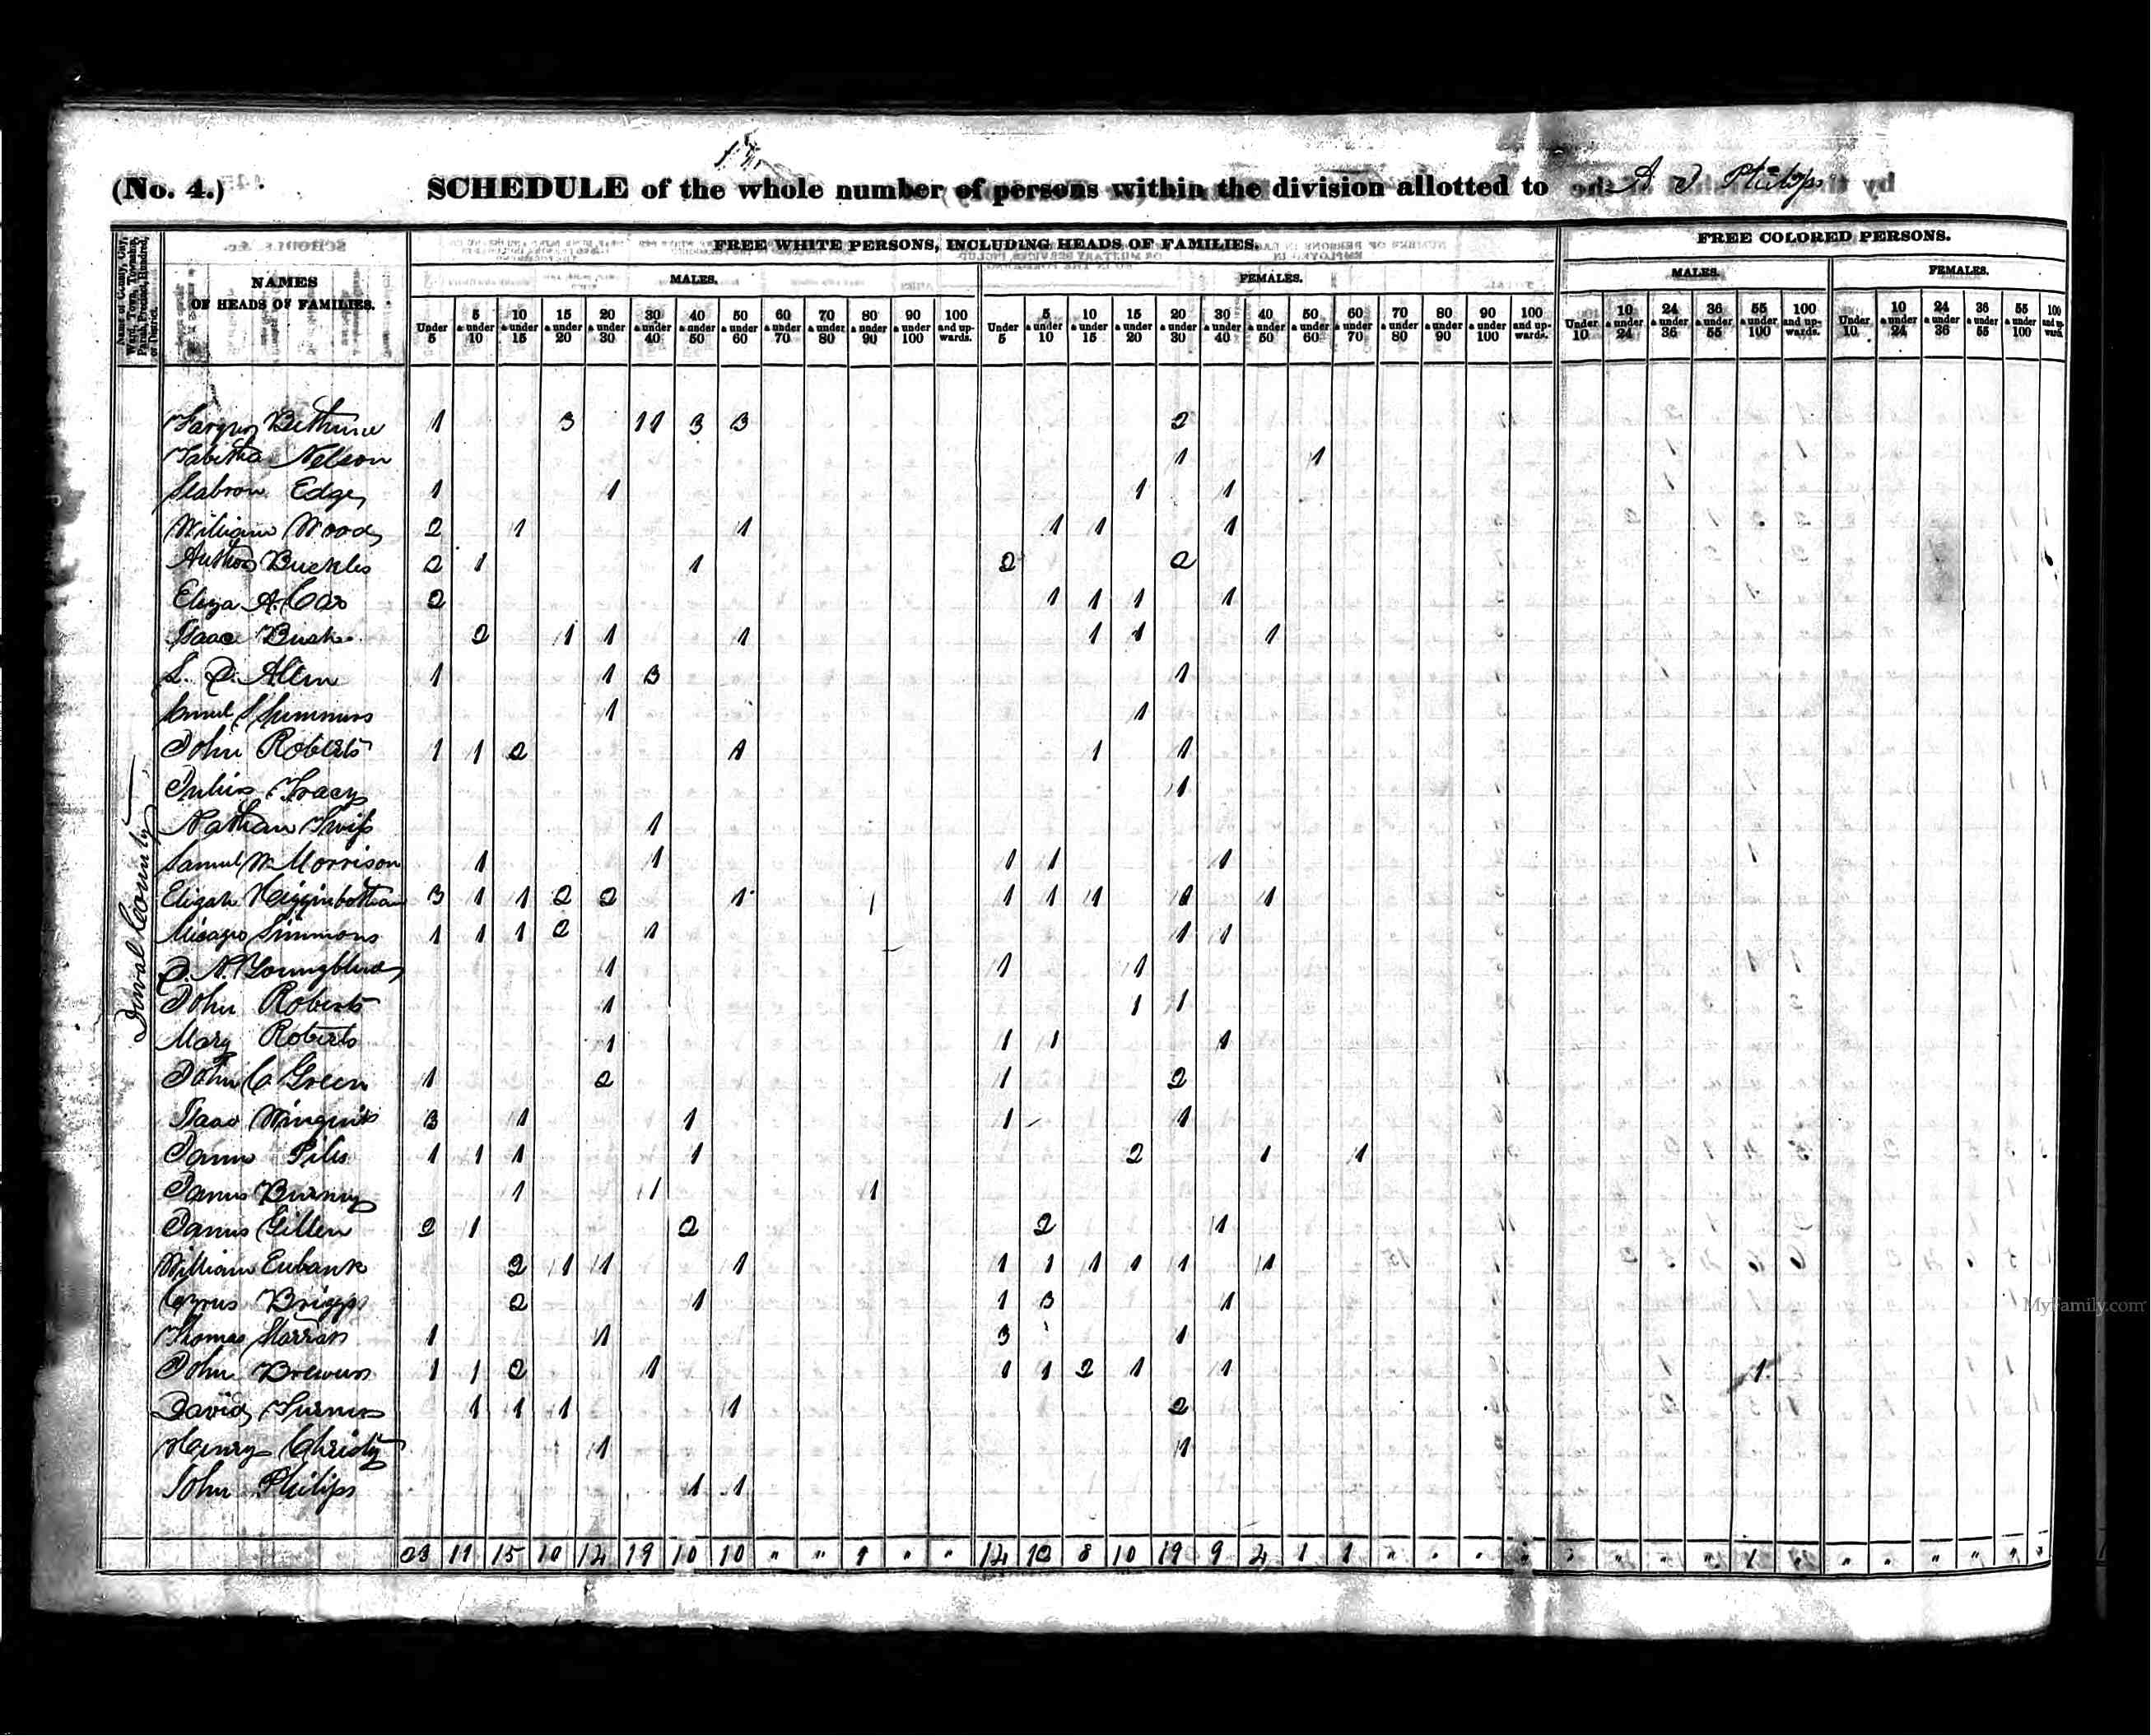 (No. 4.) SCHEDULE of the whole number of persons within the division allotted to A D Philips
FREE WHITE PERSONS, INCLUDING HEADS OF FAMILIES. FREE COLORED PERSONS.
Name of County, City, Ward, Town, Township, Parish, Precinct, Hundred, or District.
NAMES OF HEADS OF FAMILIES.
MALES. FEMALES. MALES. FEMALES.
Under 5 5 & under 10 10 & under 15 15 & under 20 20 & under 30 30 & under 40 40 & under 50 50 & under 60 60 & under 70 70 & under 80 80 & under 90 90 & under 100 100 and upwards. Under 5 5 & under 10 10 & under 15 15 & under 20 20 & under 30 30 & under 40 40 & under 50 50 & under 60 60 & under 70 70 & under 80 80 & under 90 90 & under 100 100 and upwards. Under 10 10 & under 24 24 & under 36 36 & under 55 55 & under 100 100 and upwards. Under 10 10 & under 24 24 & under 36 36 & under 55 55 & under 100 100 and upward
Duval County
Bethune 1 3 11 3 3 2
Tabitha Nelson 1 1
Seabron Edge 1 1 1 1
William Wood 2 1 1 1 1 1
Buckles 2 1 1 2 2
Eliza A. Car 2 1 1 1 1
Isaac Bush 2 1 1 1 1 1 1
L. D. Allen 1 1 3 1
Samuel S Summers 1 1
John Roberts 1 1 2 1 1 1
Tracy 1
Nathan Swift 1
Samuel W Morrison 1 1 1 1 1
Elizah Higginbotham 3 1 1 2 2 1 1 1 1 1 1
Simmons 1 1 1 2 1 1 1
D. N. Youngblud 1 1 1
John Roberts 1 1 1
Mary Roberts 1 1 1 1
John C Green 1 2 1 2
Isaac 3 1 1 1 1
James Piles 1 1 1 1 2 1 1
James Burney 1 1 1
James Gillen 2 1 2 2 1
William Eubank 2 1 1 1 1 1 1 1 1 1
Cyrus Briggs 2 1 1 3 1
Thomas 1 1 3 1
John Brewer 1 1 2 1 1 1 2 1 1 1
David Turner 1 1 1 1 2
Henry Christy 1 1
John Philips 1 1
23 11 15 10 14 19 10 10 " " 1 " " 14 13 8 10 19 9 4 1 1 " " " " " " " " 1 " " " " " " "
MyFamily.com